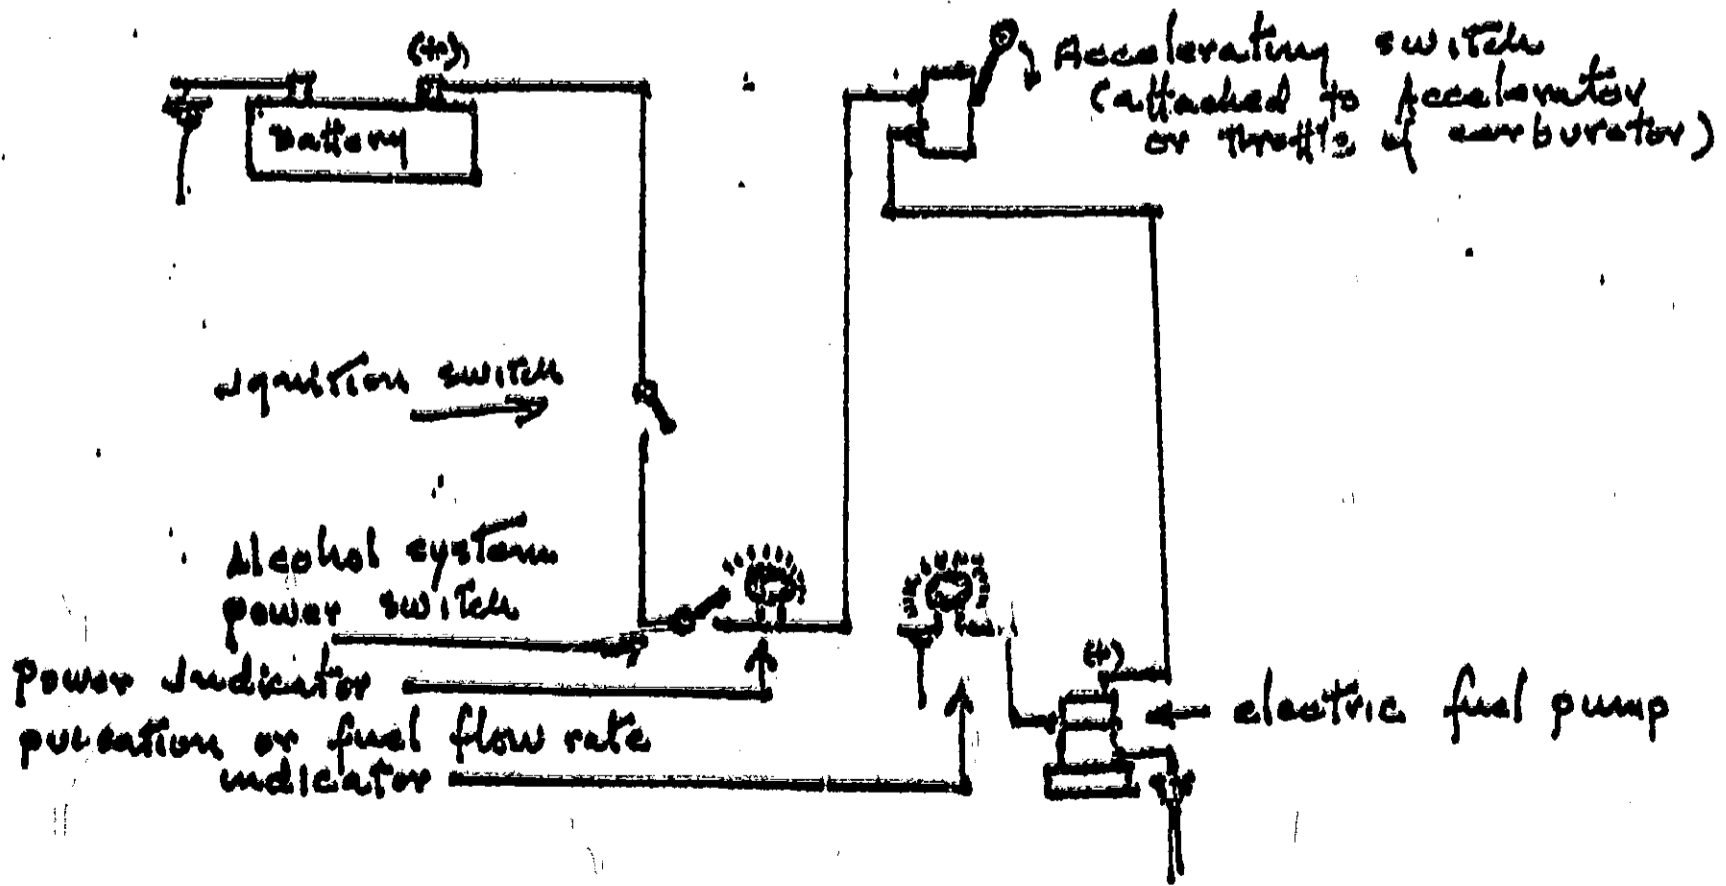 (+)
Battery
Accelerating switch
(attached to Accelerator
or throttle of carburator)
Ignition switch
Alcohol system
power switch
Power Indicator
pulsation or fuel flow rate
indicator
(+)
electric fuel pump